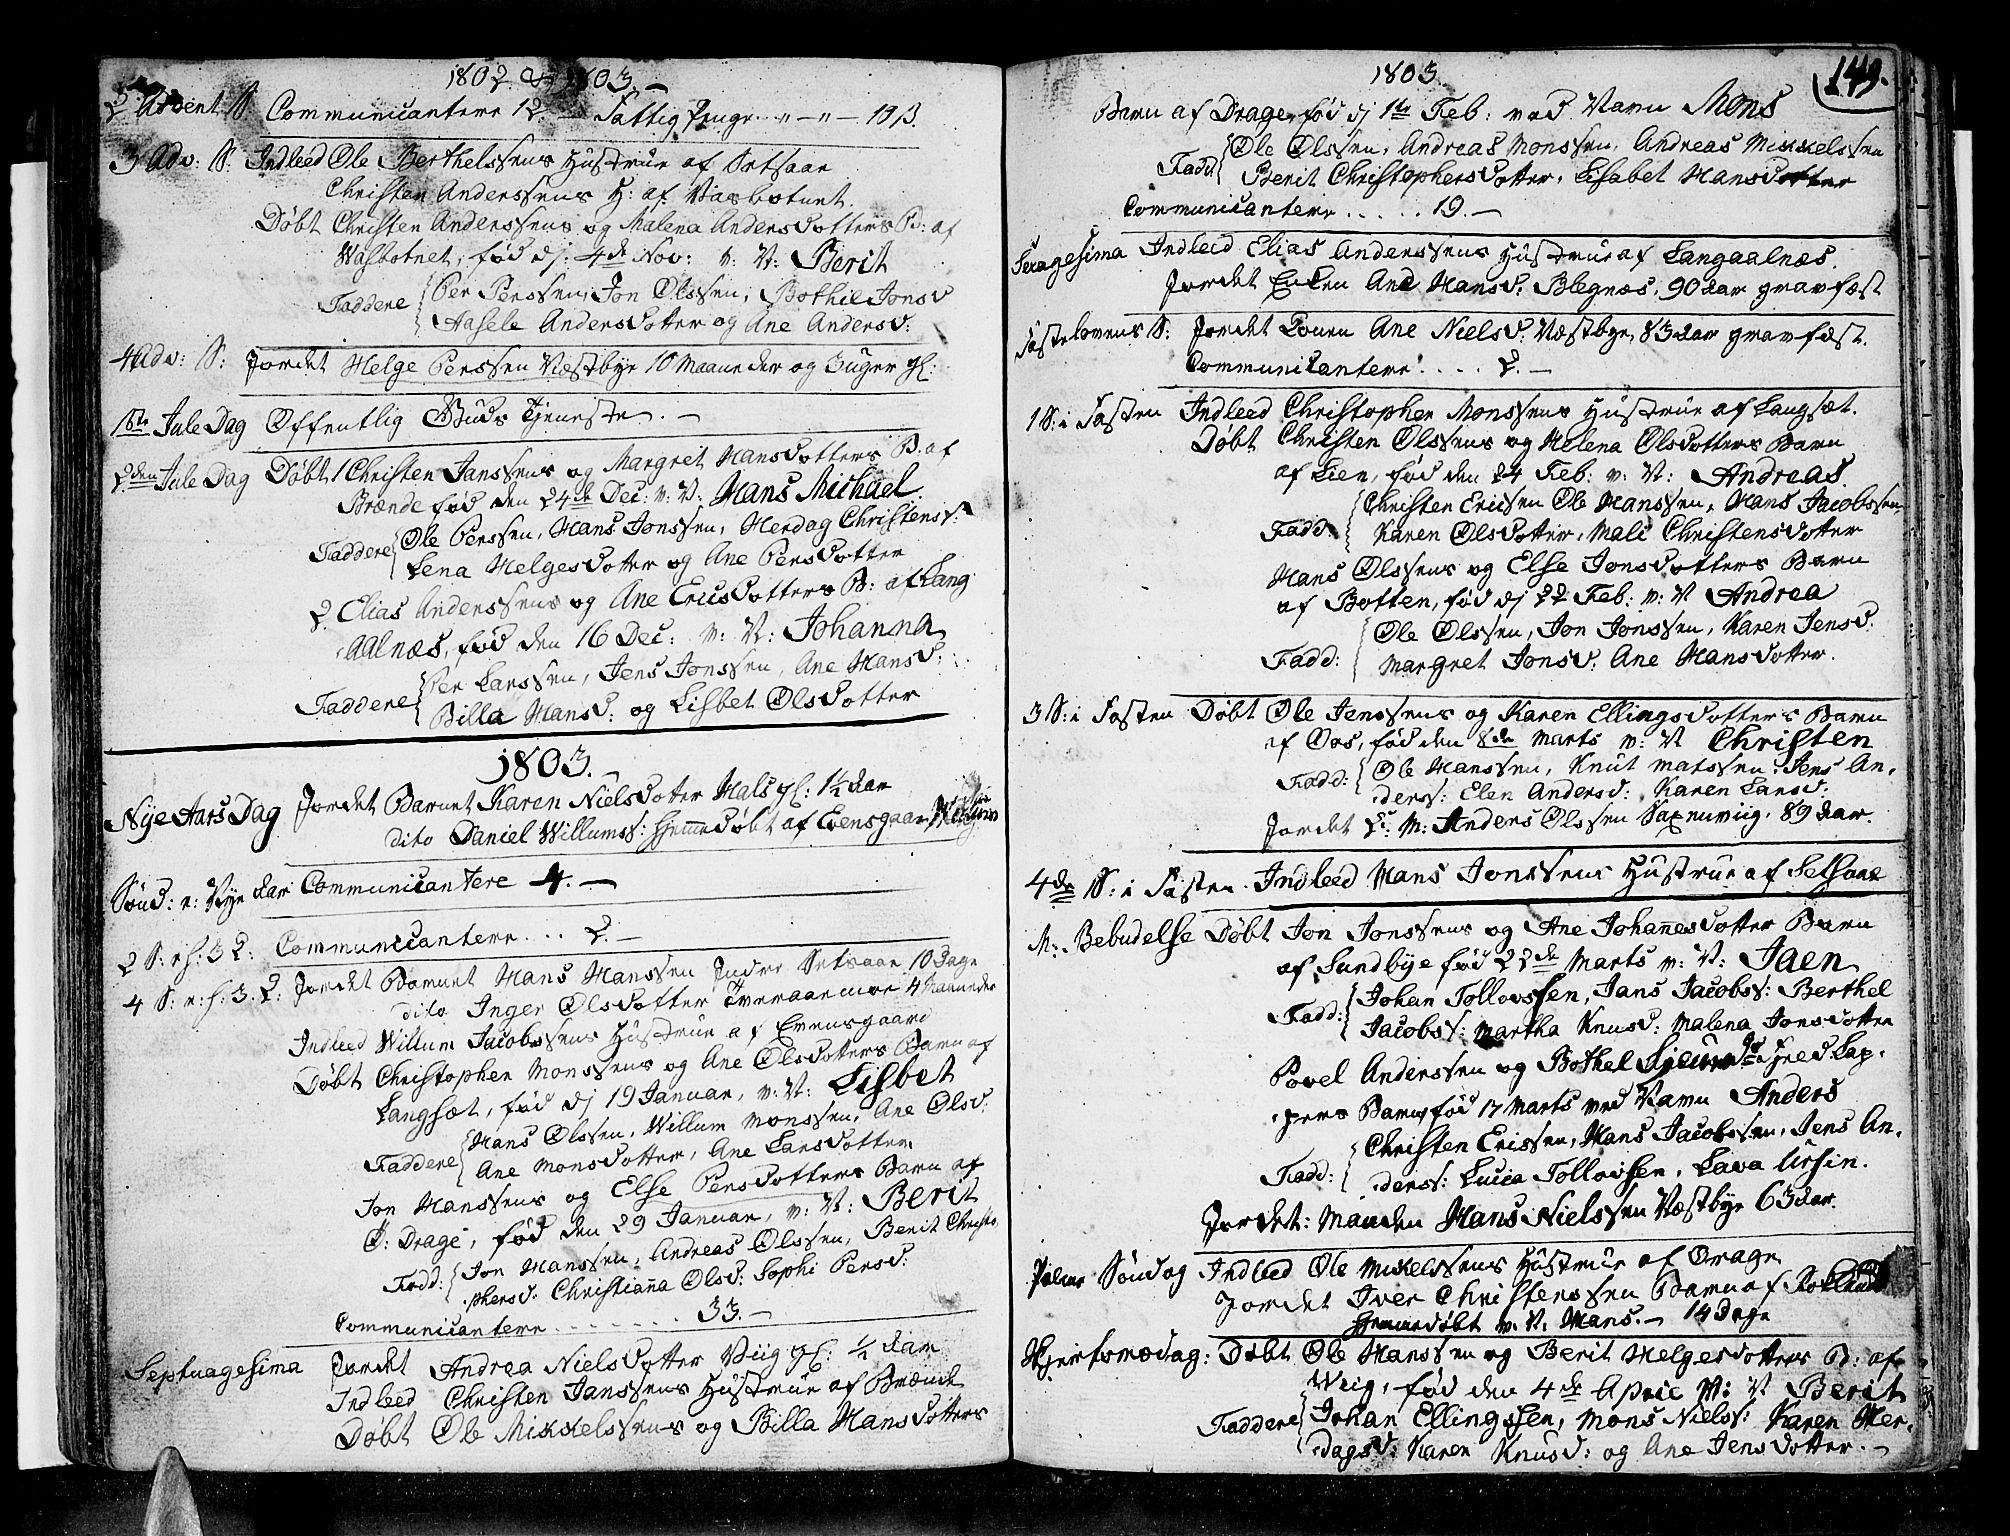 1802 & 1803.
2 Advent S Communicantere 12 Fattig Penge " — " — 19 s.
3 Adv: S: Indleed Ole Berthelssens Hustrue af Setsaae
Christen Anderssens H: af Vasbotnet.
Døbt Christen Anderssens og Malena Andersdotters B: af
Wasbotnet, fød dj: 4de Nov: v: N: Berit
Faddere Per Perssen, Jon Olssen, Bothil Jonsd
Aasele Andersdotter og Ane Andersd:
4 Adv: S: Jordet Helge Perssen Væstbye 10 Maaneder og 3 uger gl:
1ste Jule Dag Offentlig Guds Tjeneste. —
2den Jule Dag Døbt 1 Christen Janssens og Margret Hansdotters B. af
Brænde fød den 24de Dec: v: N: Hans Michael.
Faddere Ole Perssen, Hans Jonssen, Herdag Christens:
Lena Helgesdotter og Ane Persdotter
2. Elias Anderssens og Ane Ericsdotters B: af Lang
Aalnæs, fød den 16 Dec: v: N: Johanna
Faddere Per Larssen, Jens Jonssen, Ane Hansd:
Billa Hansd: og Lisbet Olsdotter
1803.
Nye Aars Dag Jordet Barnet Karen Nielsdotter Hals gl: 1½ Aar
dito Daniel Willums: hjemmedøbt af Evensgaard
Sønd: e: Nye Aar Communicantere 4. —
2 S: e: h: 3 K: Communicantere .... 2. —
4 S: e: h: 3. K: Jordet Barnet Hans Hanssen Indre Setsaae 10 Dage
dito Inger Olsdotter Tveraaemoe 4 Maaneder
Indleed Willum Jacobssens Hustrue af Evensgaard
Døbt Christopher Monssens og Ane Olsdotters Barn af
Langsæt, fød dj 19 Januar, v: N: Lisbet
Faddere Hans Olssen, Willum Monssen, Ane Olsd:
Ane Monsdotter, Ane Larsdotter
Jon Hanssens og Else Persdotters Barn af
Ø: Drage, fød den 29 Januar, v: N: Berit
Fadd: Jon Hanssen, Andreas Olssen, Berit Christo
phersd: Christianna Olsd: Sophi Persd:
Communicantere ........ 33. —
Septuagesima Jordet Andrea Nielsdotter Viig gl: ½ Aar
Indleed Christen Janssens Hustrue af Brænde
Døbt Ole Mikkelssens og Billa Hansdotters
1803
149.
Barn af Drage, fød dj 1ste Feb: med Navn Mons
Fadd: Ole Olssen, Andreas Monssen, Andreas Mikkelssen
Berit Christophersdotter, Lisabet Hansdotter
Communicantere ..... 19. —
Sexagesima Indleed Elias Anderssens Hustrue af Langaalnæs.
Jordet Enken Ane Hansd: Blegnæs, 90 Aar gravfæst
Fastelavens S: Jordet Konen Ane Nielsd: Væstbye, 83 Aar gravfæst.
Communicantere .... 2. —
1 S: i Fasten Indleed Christopher Monssens Hustrue af Langsæt.
Døbt Christen Olssens og Helena Olsdotters Barn
af Lien, fød den 24 Feb: v: N: Andreas.
Fadd: Christen Ericsen Ole Hanssen, Hans Jacobssen
Karen Olsdotter, Mali Christensdotter
Hans Olssens og Else Jonsdotters Barn
af Botten, fød dj 22 Feb: v: N Andrea
Fadd: Ole Olssen, Jon Jonssen, Karen Jensd:
Margret Jonsd: Ane Hansdotter.
3 S: i Fasten Døbt Ole Jenssens og Karen Ellingsdotters Barn
af Oos, fød den 8de Marts v: N Christen
Fadd: Ole Hanssen, Knut Matssen, Jens An,
derss: Elen Andersd: Karen Larsd:
Jordet L: M: Anders Olssen Saxenviig, 89 Aar.
4de S: i Fasten Indleed Hans Jonssens Hustrue af Setsaae
M: Bebudelse Døbt Jon Jonssens og Ane Johannesdotter Barn
af Sundbye fød 22de Marts v: N: Jaen
Fadd: Johan Tollovssen, Jans Jacobs: Berthel
Jacobs: Martha Knusd: Malena Jonsdotter
Povel Anderssen og Bothel Lap,
pers Barn, fød 17 Marts med Navn Anders
Fadd: Christen Erissen, Hans Jacobssen, Jens An,
derss: Lucia Tollovsen, Lava Ursin.
Jordet: Manden Hans Nielssen Væstbye 63 Aar.
Palme Søndag Indleed Ole Mikelssens Hustrue af Drage
Jordet Iver Christenssen Barn af Rokland
Hjemmedøbt v. N. Hans. — 14 Dage
Skjertsmædag: Døbt Ole Hanssen og Berit Helgesdotters B: af
Wiig, fød den 4de April v: N Berit
Faddere Johan Ellingssen, Mons Niels: Karen Her,
dagsd: Karen Knusd: og Ane Jensdotter. —